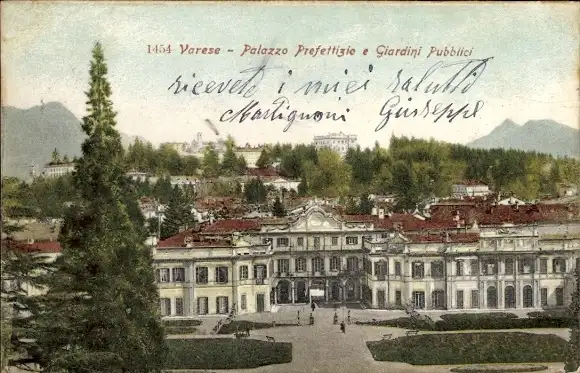 1454 Varese - Palazzo Prefettizio e Giardini Pubblici
ricevete i miei saluti
Martignoni Giuseppe